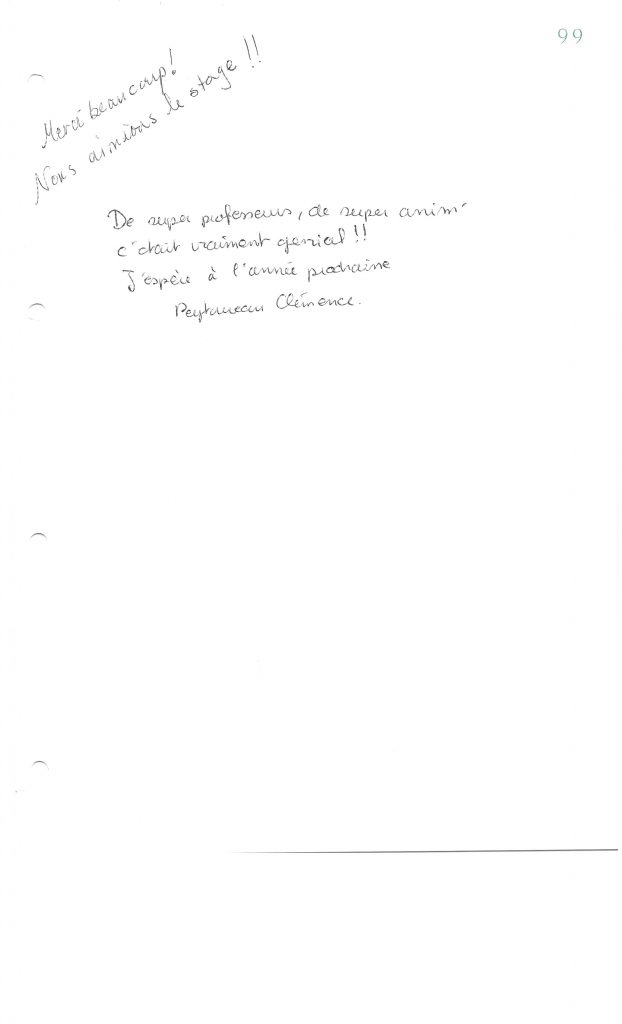 99
Merci beaucoup!
Nous aimions le stage!!
De super professeurs, de super anim'
c'était vraiment genial!!
J'espère à l'année prochaine
Clémence.